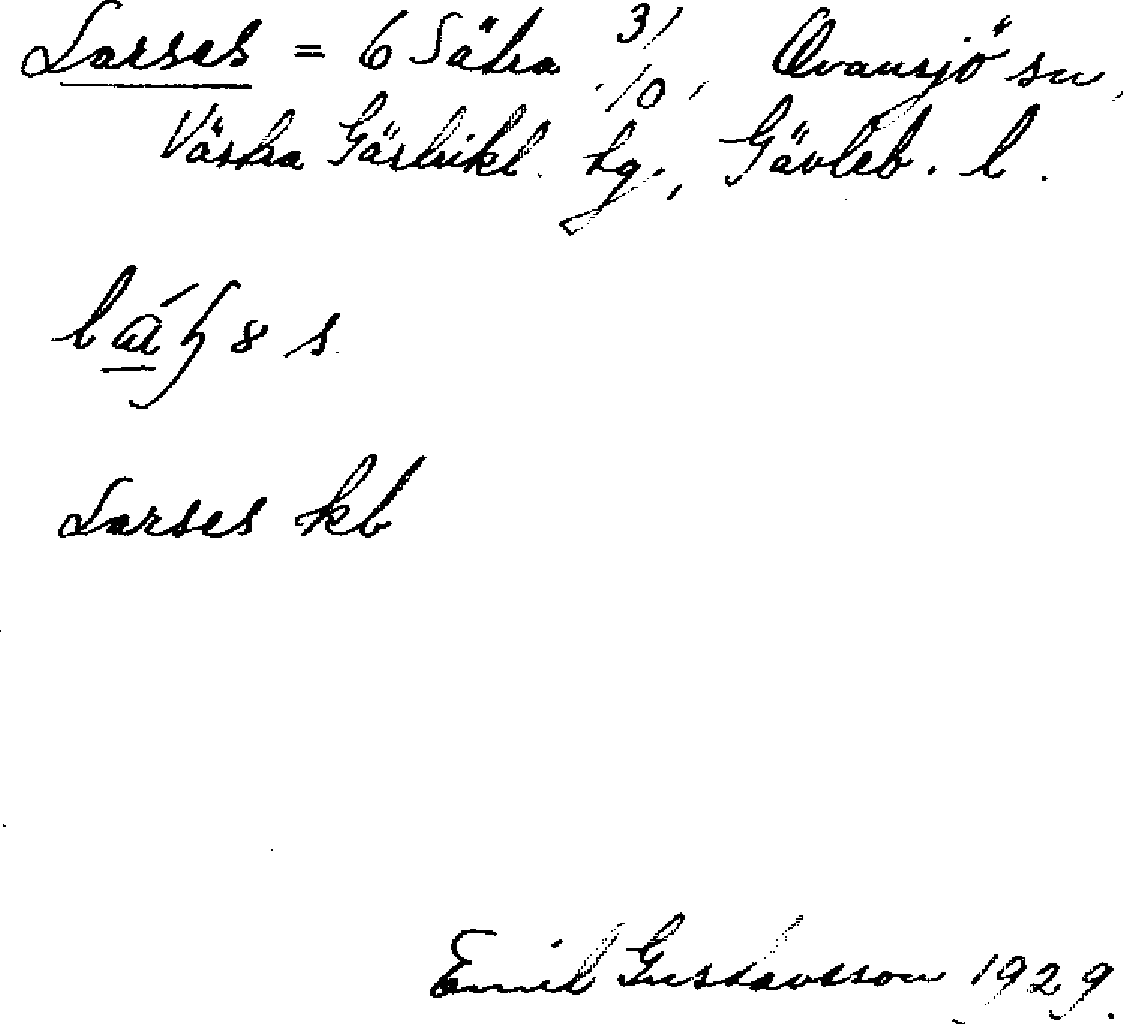 Larses = 6 Sätra 3/10, Ovansjö sn,
Västra Gästrikl. hg., Gävleb. l.
Larses kb
Emil Gustavsson 1929.